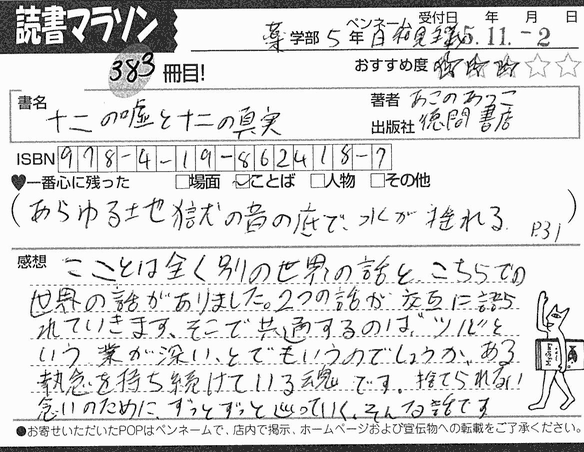 読書マラソン
383冊目!
ペンネーム 受付日 年 月 日
薬学部 5年 15.11.-2
おすすめ度 ★★★☆☆
書名 十二の嘘と十二の真実
著者 あさのあつこ
出版社 徳間書店
ISBN 978-4-19-862418-7
♥一番心に残った □場面 ☑ことば □人物 □その他
(あらゆる地獄の音の底で、水が揺れる P.31)
感想 ここは全く別の世界の話と、こちらでの
世界の話がありました。2つの話が交互に語ら
れていきます。そこで共通するのは"ツバキ"と
いう、業が深い、とでもいうのでしょうか。ある
執念を持ち続けている魂です。捨てられない
念いのために、ずっとずっと巡っていく、そんな話です
●お寄せいただいたPOPはペンネームで、店内で掲示、ホームページおよび宣伝物への転載をご了承ください。